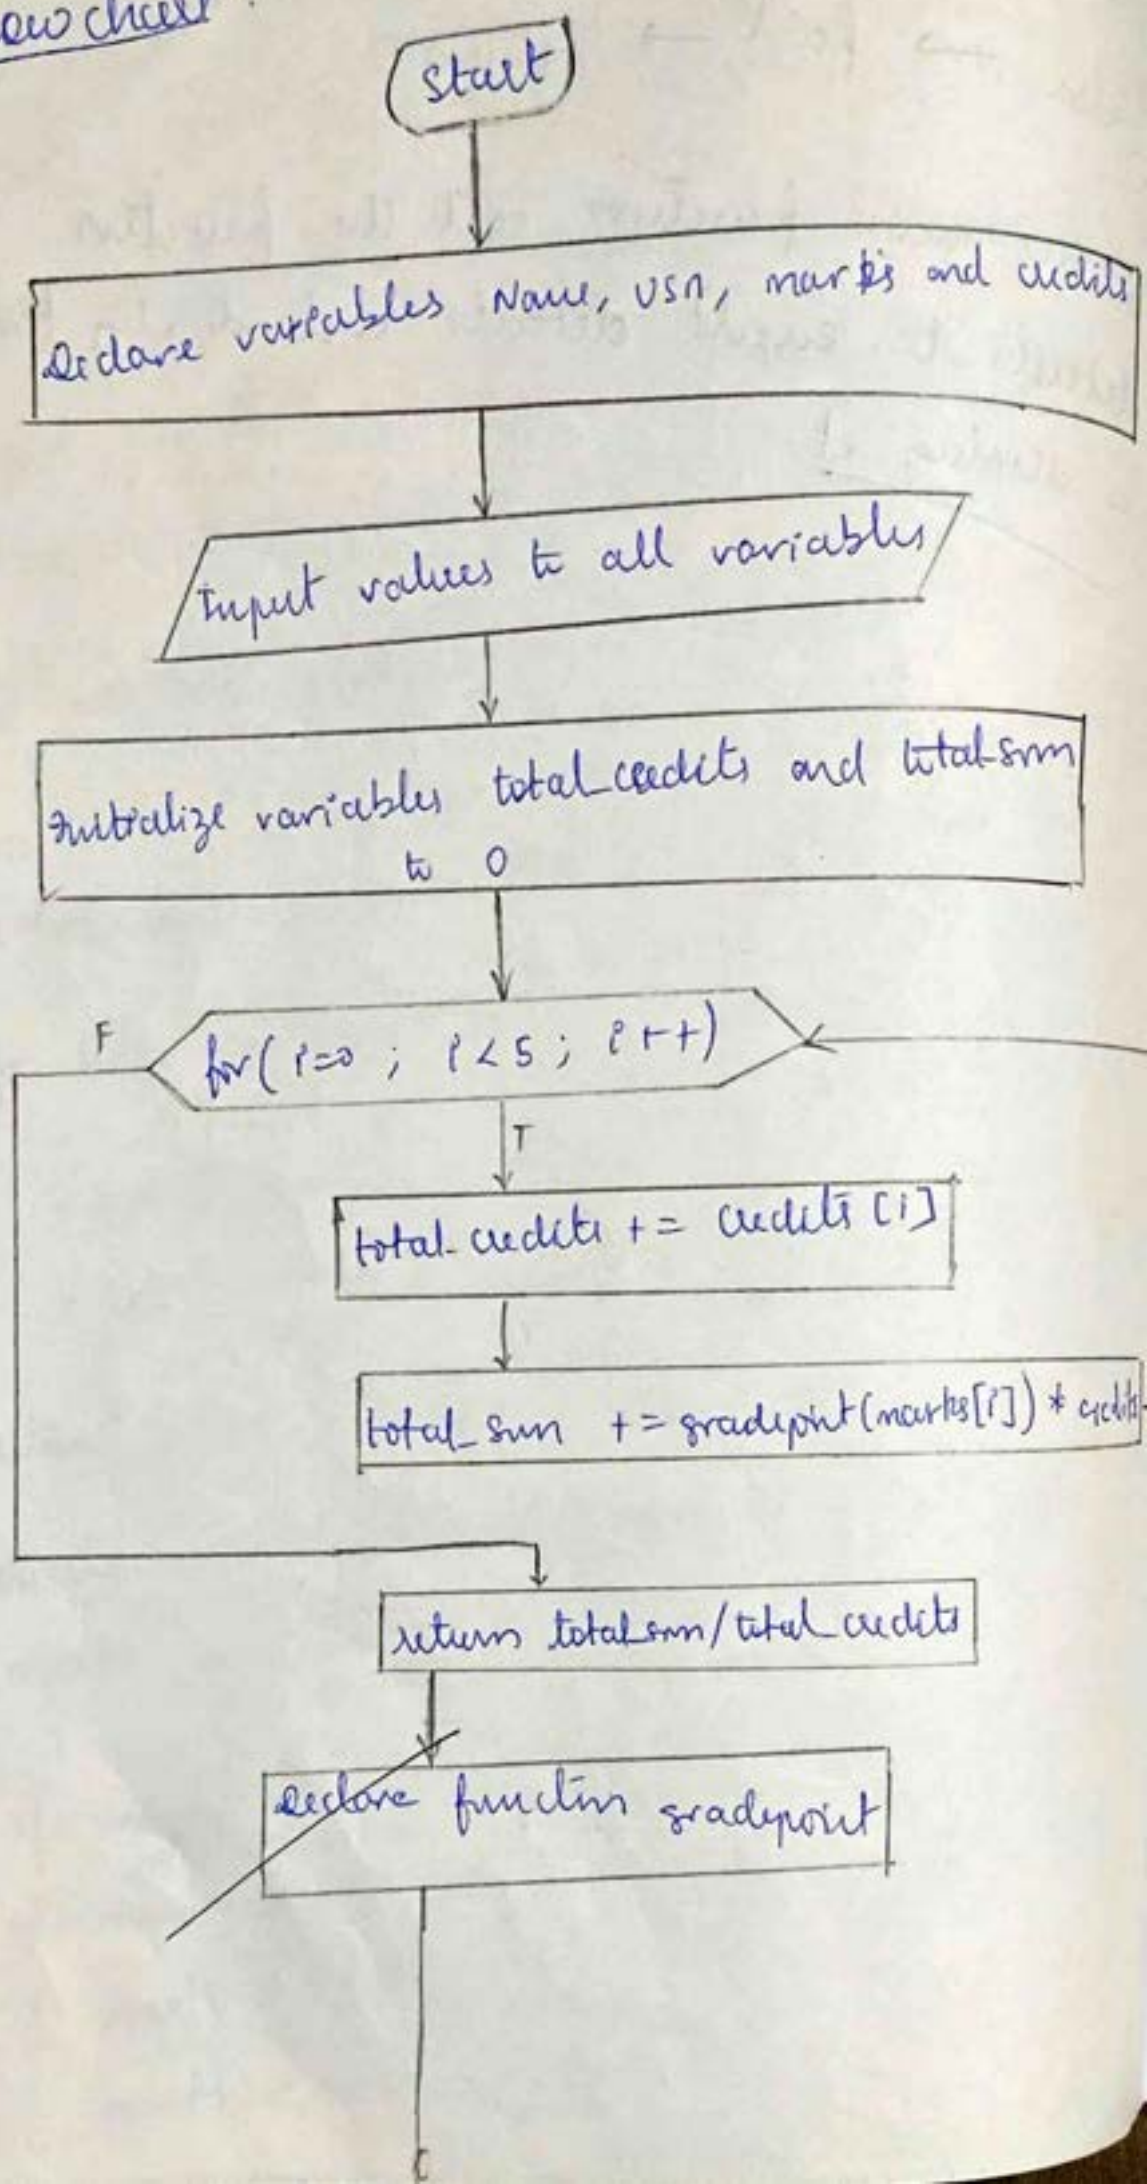 Flow chart
Start
Declare variables Name, USN, marks and credits
Input values to all variables
Initialize variables total_credits and total_sum
to 0
F
for(i=0 ; i<5 ; i++)
T
total_credits += credits[i]
total_sum += gradepoint(marks[i]) * credits
return total_sum/total_credits
Declare function gradepoint